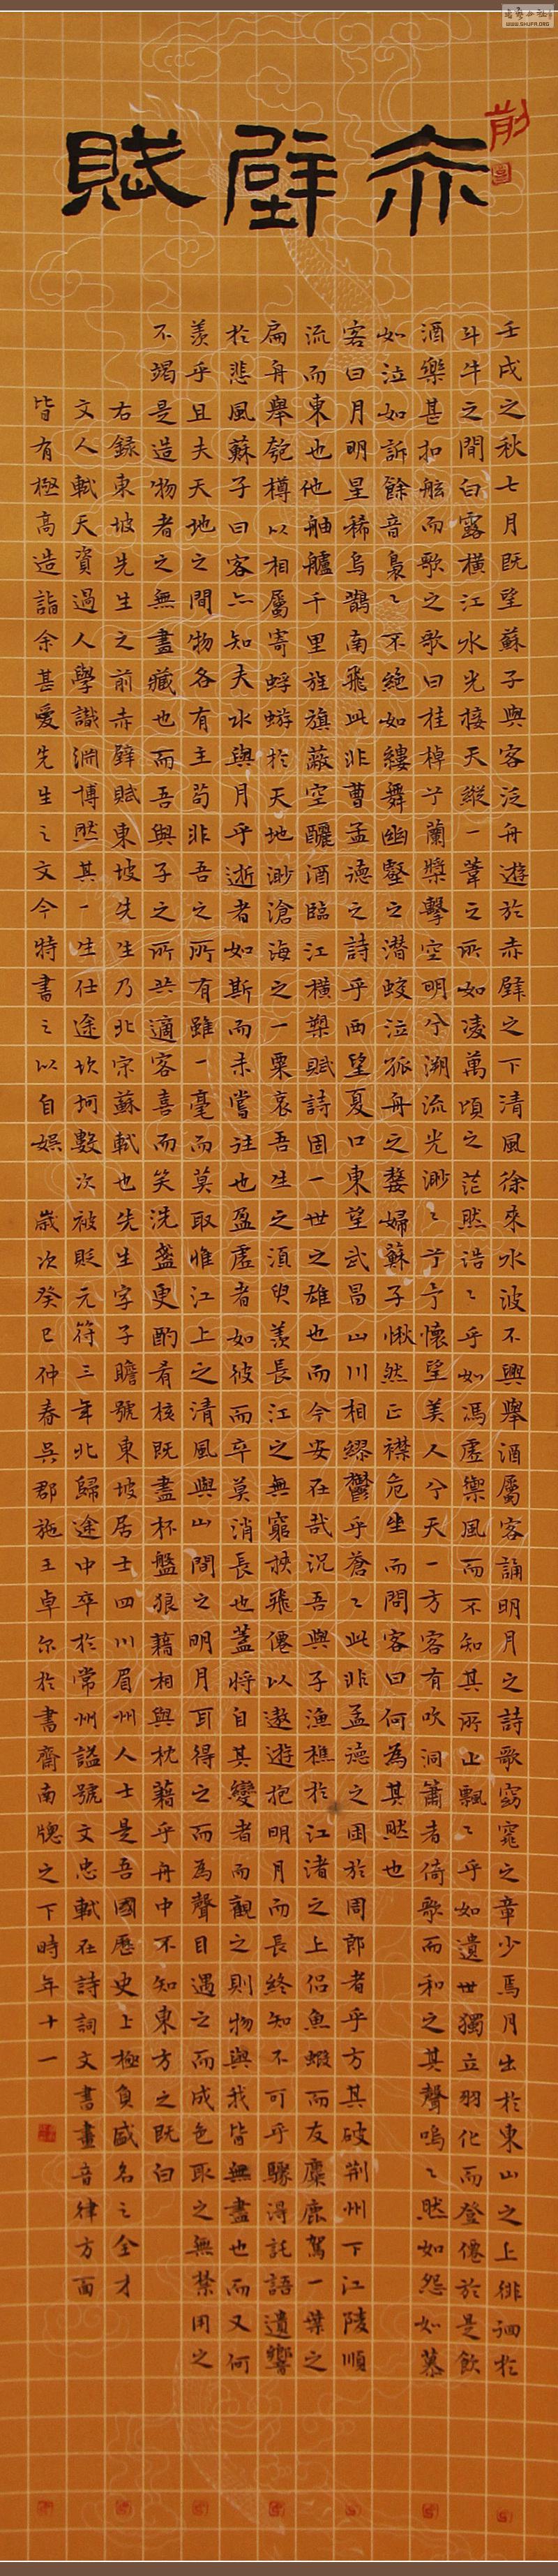 前
赤壁賦
壬戌之秋七月既望蘇子與客泛舟遊於赤壁之下清風徐來水波不興舉酒屬客誦明月之詩歌窈窕之章少焉月出於東山之上徘徊於
斗牛之間白露橫江水光接天縱一葦之所如凌萬頃之茫然浩〻乎如馮虛禦風而不知其所止飄〻乎如遺世獨立羽化而登僊於是飲
酒樂甚扣舷而歌之歌曰桂棹兮蘭槳擊空明兮溯流光渺〻兮予懷望美人兮天一方客有吹洞簫者倚歌而和之其聲嗚〻然如怨如慕
如泣如訴餘音裊〻不絕如縷舞幽壑之潛蛟泣孤舟之嫠婦蘇子愀然正襟危坐而問客曰何為其然也
客曰月明星稀烏鵲南飛此非曹孟德之詩乎西望夏口東望武昌山川相繆鬱乎蒼〻此非孟德之困於周郎者乎方其破荊州下江陵順
流而東也他舳艫千里旌旗蔽空釃酒臨江橫槊賦詩固一世之雄也而今安在哉況吾與子漁樵於江渚之上侶魚蝦而友麋鹿駕一葉之
扁舟舉匏樽以相屬寄蜉蝣於天地渺滄海之一粟哀吾生之須臾羨長江之無窮挾飛僊以遨遊抱明月而長終知不可乎驟得託語遺響
於悲風蘇子曰客亦知夫水與月乎逝者如斯而未嘗往也盈虛者如彼而卒莫消長也蓋將自其變者而觀之則物與我皆無盡也而又何
羨乎且夫天地之間物各有主苟非吾之所有雖一毫而莫取惟江上之清風與山間之明月耳得之而為聲目遇之而成色取之無禁用之
不竭是造物者之無盡藏也而吾與子之所共適客喜而笑洗盞更酌肴核既盡杯盤狼藉相與枕藉乎舟中不知東方之既白
右錄東坡先生之前赤壁賦東坡先生乃北宋蘇軾也先生字子瞻號東坡居士四川眉州人士是吾國歷史上極負盛名之全才
文人軾天資過人學識淵博然其一生仕途坎坷數次被貶元符三年北歸途中卒於常州謚號文忠軾在詩詞文書畫音律方面
皆有極高造詣余甚愛先生之文今特書之以自娛 歲次癸巳仲春吳郡施王卓尔於書齋南牕之下時年十一
WWW.SHUFA.ORG